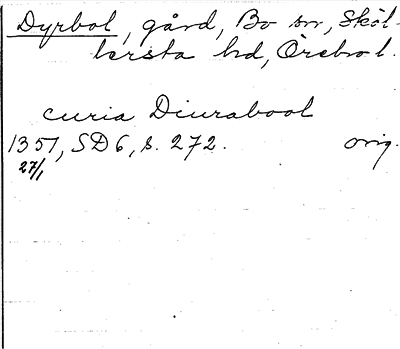 Dyrbol, gård, Bo sn, Sköl-
lersta hd, Örebro l.
curia Diurabool
1351, SD 6, s. 272. orig.
27/1